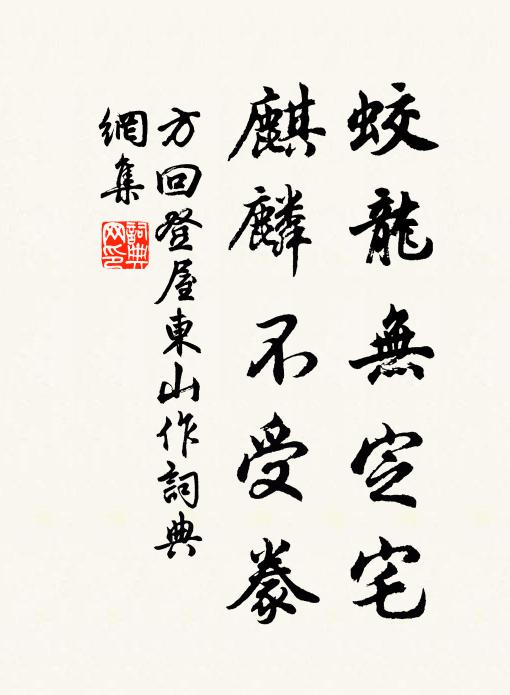 蛟龍無定宅
麒麟不受豢
方回登屋東山作詞典
網集
詞典
网印